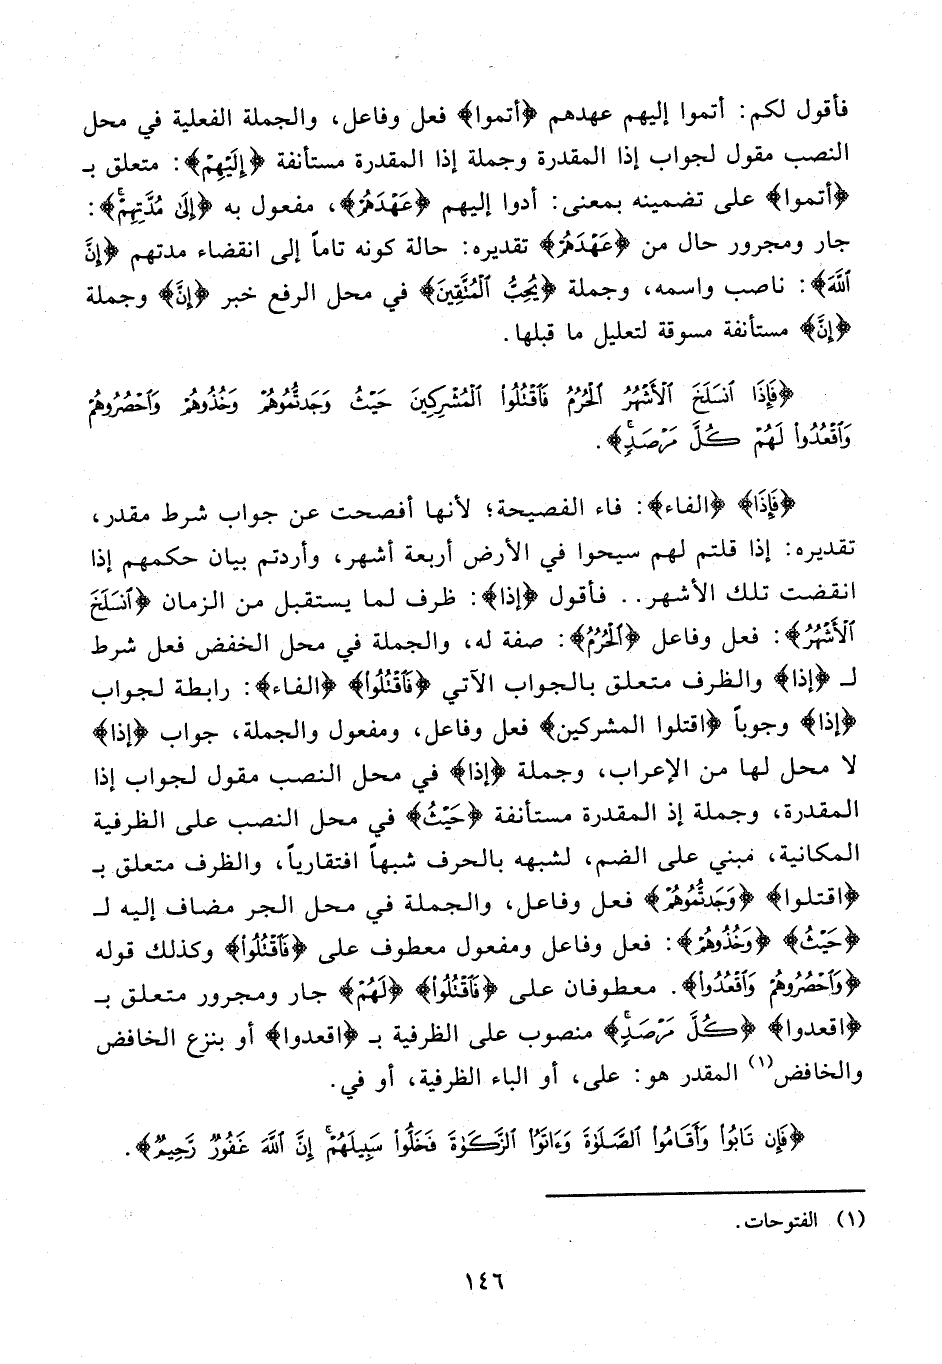 فأقول لكم: أتموا إليهم عهدهم ﴿أتموا﴾ فعل وفاعل، والجملة الفعلية في محل
النصب مقول لجواب إذا المقدرة وجملة إذا المقدرة مستأنفة ﴿إِلَيْهِمْ﴾: متعلق بـ
﴿أتموا﴾ على تضمينه بمعنى: أدوا إليهم ﴿عَهْدَهُمْ﴾، مفعول به ﴿إِلَىٰ مُدَّتِهِمْ ۚ﴾:
جار ومجرور حال من ﴿عَهْدَهُمْ﴾ تقديره: حالة كونه تاماً إلى انقضاء مدتهم ﴿إِنَّ
اللَّهَ﴾: ناصب واسمه، وجملة ﴿يُحِبُّ الْمُتَّقِينَ﴾ في محل الرفع خبر ﴿إِنَّ﴾ وجملة
﴿إِنَّ﴾ مستأنفة مسوقة لتعليل ما قبلها.
﴿فَإِذَا ٱنسَلَخَ ٱلْأَشْهُرُ ٱلْحُرُمُ فَٱقْتُلُوا۟ ٱلْمُشْرِكِينَ حَيْثُ وَجَدتُّمُوهُمْ وَخُذُوهُمْ وَٱحْصُرُوهُمْ
وَٱقْعُدُوا۟ لَهُمْ كُلَّ مَرْصَدٍ ۚ﴾.
﴿فَإِذَا﴾ ﴿الفاء﴾: فاء الفصيحة؛ لأنها أفصحت عن جواب شرط مقدر،
تقديره: إذا قلتم لهم سيحوا في الأرض أربعة أشهر، وأردتم بيان حكمهم إذا
انقضت تلك الأشهر.. فأقول ﴿إذا﴾: ظرف لما يستقبل من الزمان ﴿ٱنسَلَخَ
ٱلْأَشْهُرُ﴾: فعل وفاعل ﴿ٱلْحُرُمُ﴾: صفة له، والجملة في محل الخفض فعل شرط
لـ ﴿إذا﴾ والظرف متعلق بالجواب الآتي ﴿فَٱقْتُلُوا۟﴾ ﴿الفاء﴾: رابطة لجواب
﴿إذا﴾ وجوباً ﴿اقتلوا المشركين﴾ فعل وفاعل، ومفعول والجملة، جواب ﴿إذا﴾
لا محل لها من الإعراب، وجملة ﴿إذا﴾ في محل النصب مقول لجواب إذا
المقدرة، وجملة إذ المقدرة مستأنفة ﴿حَيْثُ﴾ في محل النصب على الظرفية
المكانية، مبني على الضم، لشبهه بالحرف شبهاً افتقارياً، والظرف متعلق بـ
﴿اقتلوا﴾ ﴿وَجَدتُّمُوهُمْ﴾ فعل وفاعل، والجملة في محل الجر مضاف إليه لـ
﴿حَيْثُ﴾ ﴿وَخُذُوهُمْ﴾: فعل وفاعل ومفعول معطوف على ﴿فَٱقْتُلُوا۟﴾ وكذلك قوله
﴿وَٱحْصُرُوهُمْ وَٱقْعُدُوا۟﴾. معطوفان على ﴿فَٱقْتُلُوا۟﴾ ﴿لَهُمْ﴾ جار ومجرور متعلق بـ
﴿اقعدوا﴾ ﴿كُلَّ مَرْصَدٍ ۚ﴾ منصوب على الظرفية بـ ﴿اقعدوا﴾ أو بنزع الخافض
والخافض(١) المقدر هو: على، أو الباء الظرفية، أو في.
﴿فَإِن تَابُوا۟ وَأَقَامُوا۟ ٱلصَّلَوٰةَ وَءَاتَوُا۟ ٱلزَّكَوٰةَ فَخَلُّوا۟ سَبِيلَهُمْ ۚ إِنَّ ٱللَّهَ غَفُورٌ رَّحِيمٌ﴾.
(١) الفتوحات.
١٤٦